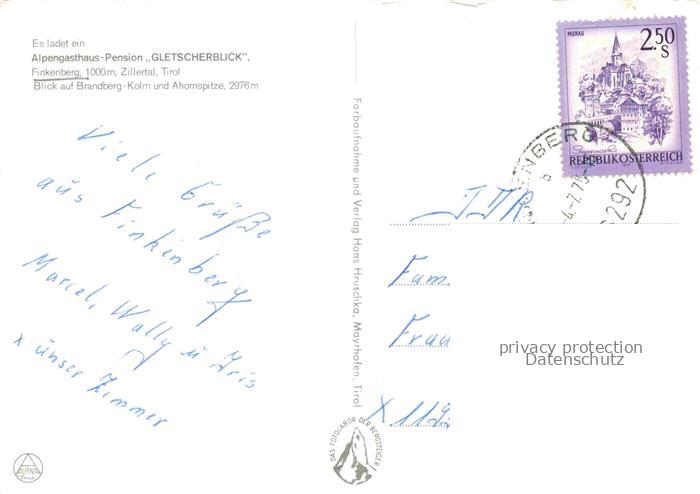 Es ladet ein
Alpengasthaus-Pension „GLETSCHERBLICK",
Finkenberg, 1000m, Zillertal, Tirol
Blick auf Brandberg-Kolm und Ahornspitze, 2976 m
Viele Grüße
aus Finkenberg
Marcel, Wally u Iris
x unser Zimmer
ALPINA
Farbaufnahme und Verlag Hans Hruschka, Mayrhofen, Tirol
DAS FOTOLABOR DER BERGSTEIGER
MURAU
2.50
S
REPUBLIK ÖSTERREICH
ENBERG
b
-4.-7.75
6292
DDR
Fam.
Frau
X 119
privacy protection
Datenschutz